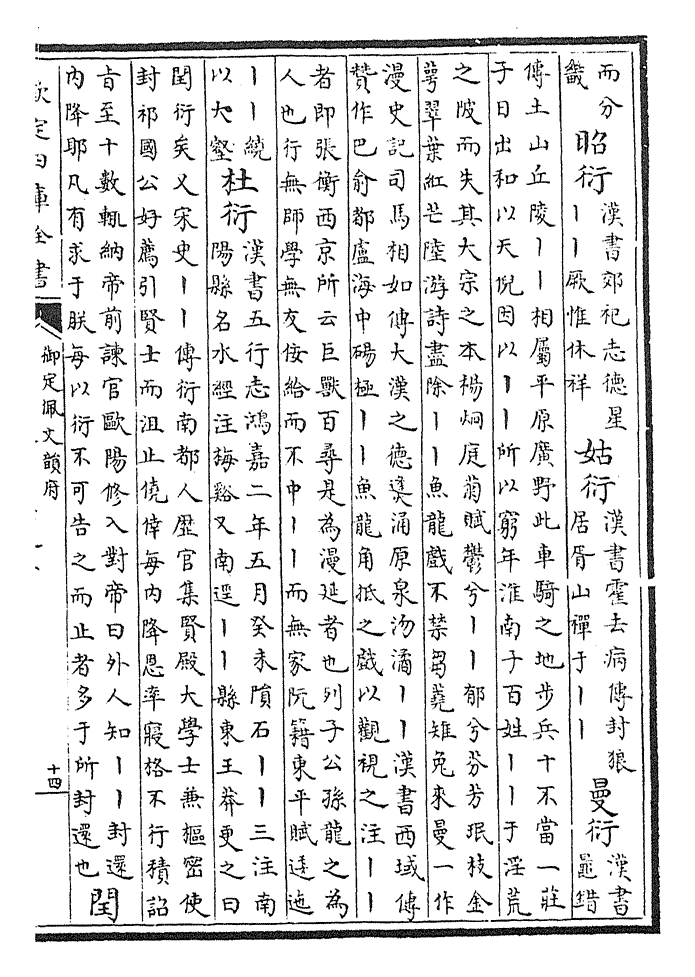 而分
畿
昭衍
漢書郊祀志德星
｜｜厥惟休祥
姑衍
漢書霍去病傳封狼
居胥山禪于｜｜
曼衍
漢書
鼂錯
傳土山丘陵｜｜相屬平原廣野此車騎之地步兵十不當一莊
子曰出和以天倪因以｜｜所以窮年淮南子百姓｜｜于淫荒
之陂而失其大宗之本楊炯庭菊賦鬱兮｜｜郁兮芬芳珉枝金
萼翠葉紅芒陸游詩盡除｜｜魚龍戲不禁芻蕘雉兔來曼一作
漫史記司馬相如傳大漢之德逢涌原泉沕潏｜｜漢書西域傳
贊作巴俞都盧海中碭極｜｜魚龍角抵之戲以觀視之注｜｜
者即張衡西京所云巨獸百尋是為漫延者也列子公孫龍之為
人也行無師學無友佞給而不中｜｜而無家阮籍東平賦逶迤
｜｜繞
以大壑
杜衍
漢書五行志鴻嘉二年五月癸未隕石｜｜三注南
陽縣名水經注梅谿又南逕｜｜縣東王莽更之曰
閏衍矣又宋史｜｜傳衍南都人歷官集賢殿大學士兼樞密使
封祁國公好薦引賢士而沮止僥倖每內降恩率寢格不行積詔
旨至十數輒納帝前諫官歐陽修入對帝曰外人知｜｜封還
內降耶凡有求于朕每以衍不可告之而止者多于所封還也
閏
欽定四庫全書
御定佩文韻府
十四